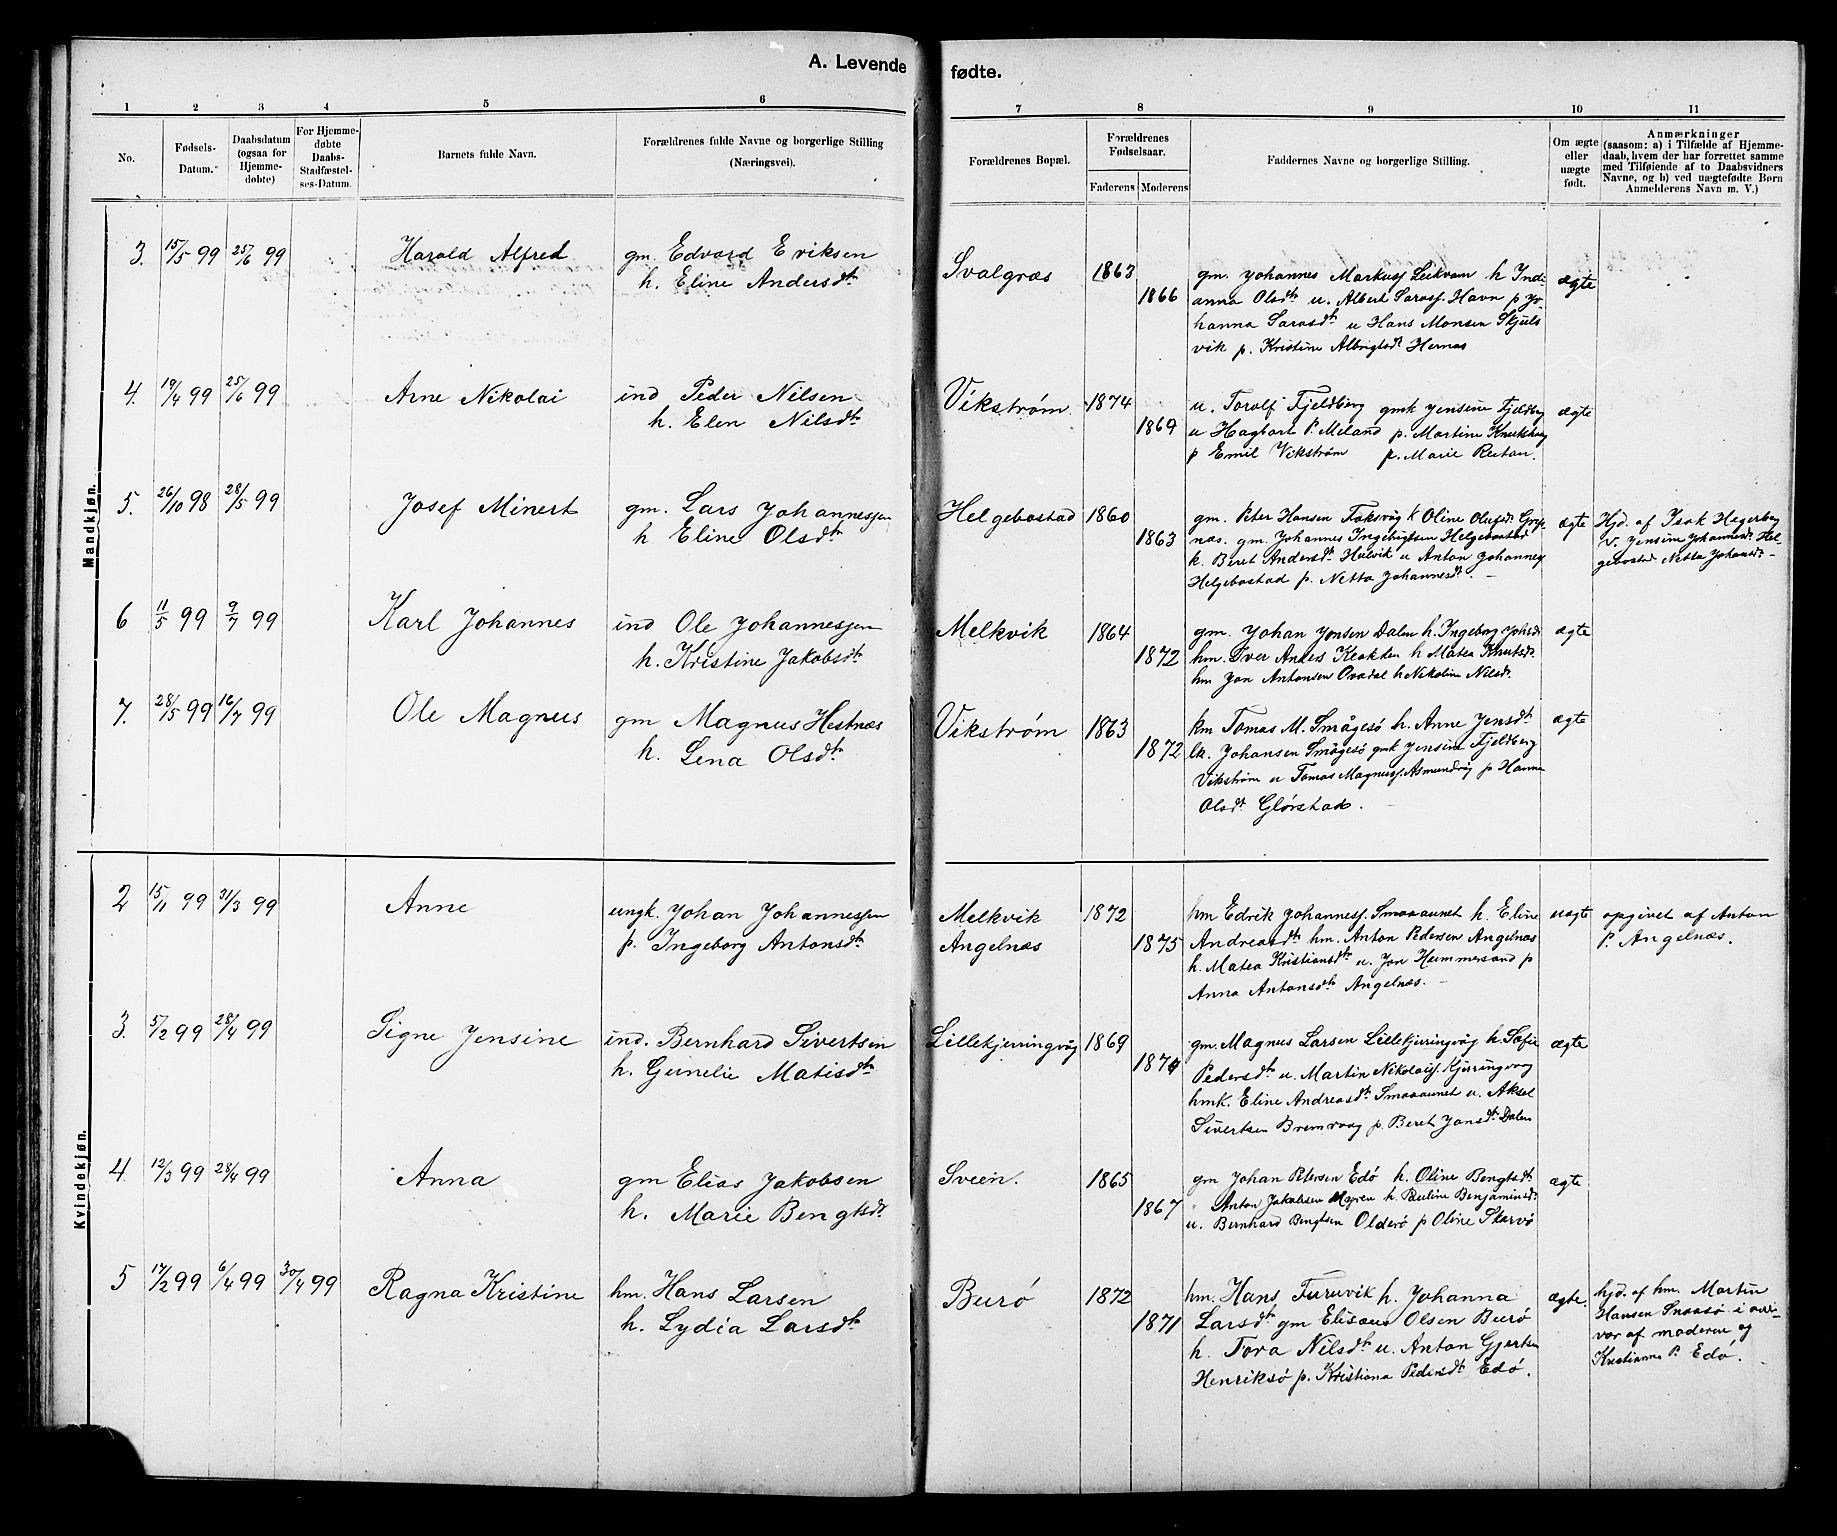 A. Levende fødte.
1 2 3 4 5 6 7 8 9 10 11
No.
Fødsels-
Datum.
Daabsdatum
(ogsaa for
Hjemme-
døbte)
For Hjemme-
døbte
Daabs-
Stadfæstel-
ses-Datum.
Barnets fulde Navn.
Forældrenes fulde Navne og borgerlige Stilling
(Næringsvei).
Forældrenes Bopæl.
Forældrenes
Fødselsaar.
Faderens Moderens
Faddernes Navne og borgerlige Stilling.
Om ægte
eller
uægte
født.
Anmærkninger
(saasom: a) i Tilfælde af Hjemme-
daab, hvem der har forrettet samme
med Tilføiende af to Daabsvidners
Navne, og b) ved uægtefødte Børn
Anmelderens Navn m. V.)
Mandkjøn.
3. 15/5 99 25/6 99 Harald Alfred
gm. Edvard Eriksen
h. Eline Andersdt
Svalgræs 1863
1866
gm. Johannes Markusf. Leikvam h Ind-
anna Olsdt u. Albert Larssf. Havn p Jo-
hanna Larsdt u Hans Monsen Skjuls
vik p. Kristine Albrigtsdt Hernæs
ægte
4. 19/4 99 25/6 99 Arne Nikolai
ind Peder Nilsen
h. Elen Nilsdt
Vikstrøm 1874
1869
u. Torolf Fjeldberg gmk Jensine Fjeldberg
u Hagbart P. Meland p. Martine
p Emil Vikstrøm p. Marie Reitan.
ægte
5. 26/10 98 28/5 99 Josef Minert
gm. Lars Johannesen
h Eline Olsdt
Helgebostad 1860
1863
gm. Peter Hansen Faksvåg k Oline Olufsdt Gryt-
næs. gm. Johannes Ingebrigtsen Helgebostad
k. Beret Andersdt Hulvik u Anton Johannes
Helgebostad p. Netta Johannesdt. -
ægte
Hjd. af Isak Hegerberg
V. Jensine Johannesdt Hel-
gebostad Netta Johansdt -
6 11/5 99 9/7 99 Karl Johannes
ind Ole Johannessen
h. Kristine Jakobsdt
Melkvik 1864
1872
gm. Johan Jonsen Dalen h. Ingeborg Johsdt
hm. Iver Anders h Matea Knutsdt
hm Jon Antonsen h Nikoline Nilsdt.
ægte
7. 28/5 99 16/7 99 Ole Magnus
gm Magnus Hestnæs
h. Lena Olsdt
Vikstrøm 1863
1872
km Tomas M. Smågesø h. Anne Jensdt
Johansen Smågesø gmk Jensine Fjeldberg
Vikstrøm u Tomas Magnusf. Asmundvåg p Hanna
Olsdt Glørstad.
ægte
Kvindekjøn.
2 15/11 99 31/3 99 Anne
ungk. Johan Johannessen
p. Ingeborg Antonsdt
Melkvik
Angelnæs
1872
1875
hm Edrik Johannesf. Smaaaunet h. Eline
Andreasdt hm. Anton Pedersen Angelnæs
h. Matea Kristiansdt u. Jon Hummersand p
Anna Antonsdt Angelnæs. -
uægte
opgivet af Anton
P. Angelnæs.
3. 5/2 99 28/4 99 Signe Jensine
ind. Bernhard Sivertsen
h. Gunelie Matisdt
Lillekjerringvåg 1869
1874
gm. Magnus Larsen Lillekjerringvåg h. Sofie
Pedersdt u. Martin Nikolaisf. Kjerringvåg
hmk. Eline Andreasdt Smaaaunet u. Aksel
Sivertsen Bremvaag p. Beret Jonsdt Dalen
ægte
4. 12/3 99 28/4 99 Anna
gm Elias Jakobsen
h. Marie Bengtsdt
Svein. 1865
1867
gm Johan Petersen Edø h. Oline Bengtsdt
" Anton Jakobsen Myren h. Pauline Benjaminsdt
u. Bernhard Bengtsen Olderø p Oline Skarvø
ægte
5 17/2 99 6/4 99 30/4 99 Ragna Kristine
hm. Hans Larsen
h. Lydia Larsdt
Burø 1872
1871
hm. Hans Furuvik h. Johanna
Larsdt gm Eliseus Olsen Burø
h. Tora Nilsdt u. Anton Gjertsen
Henriksø p. Kristiana Pedersdt Edø.
ægte.
hjd. af hm. Martin
Hansen Snaasø i over-
vær af moderen og
Kristianna P. Edø.